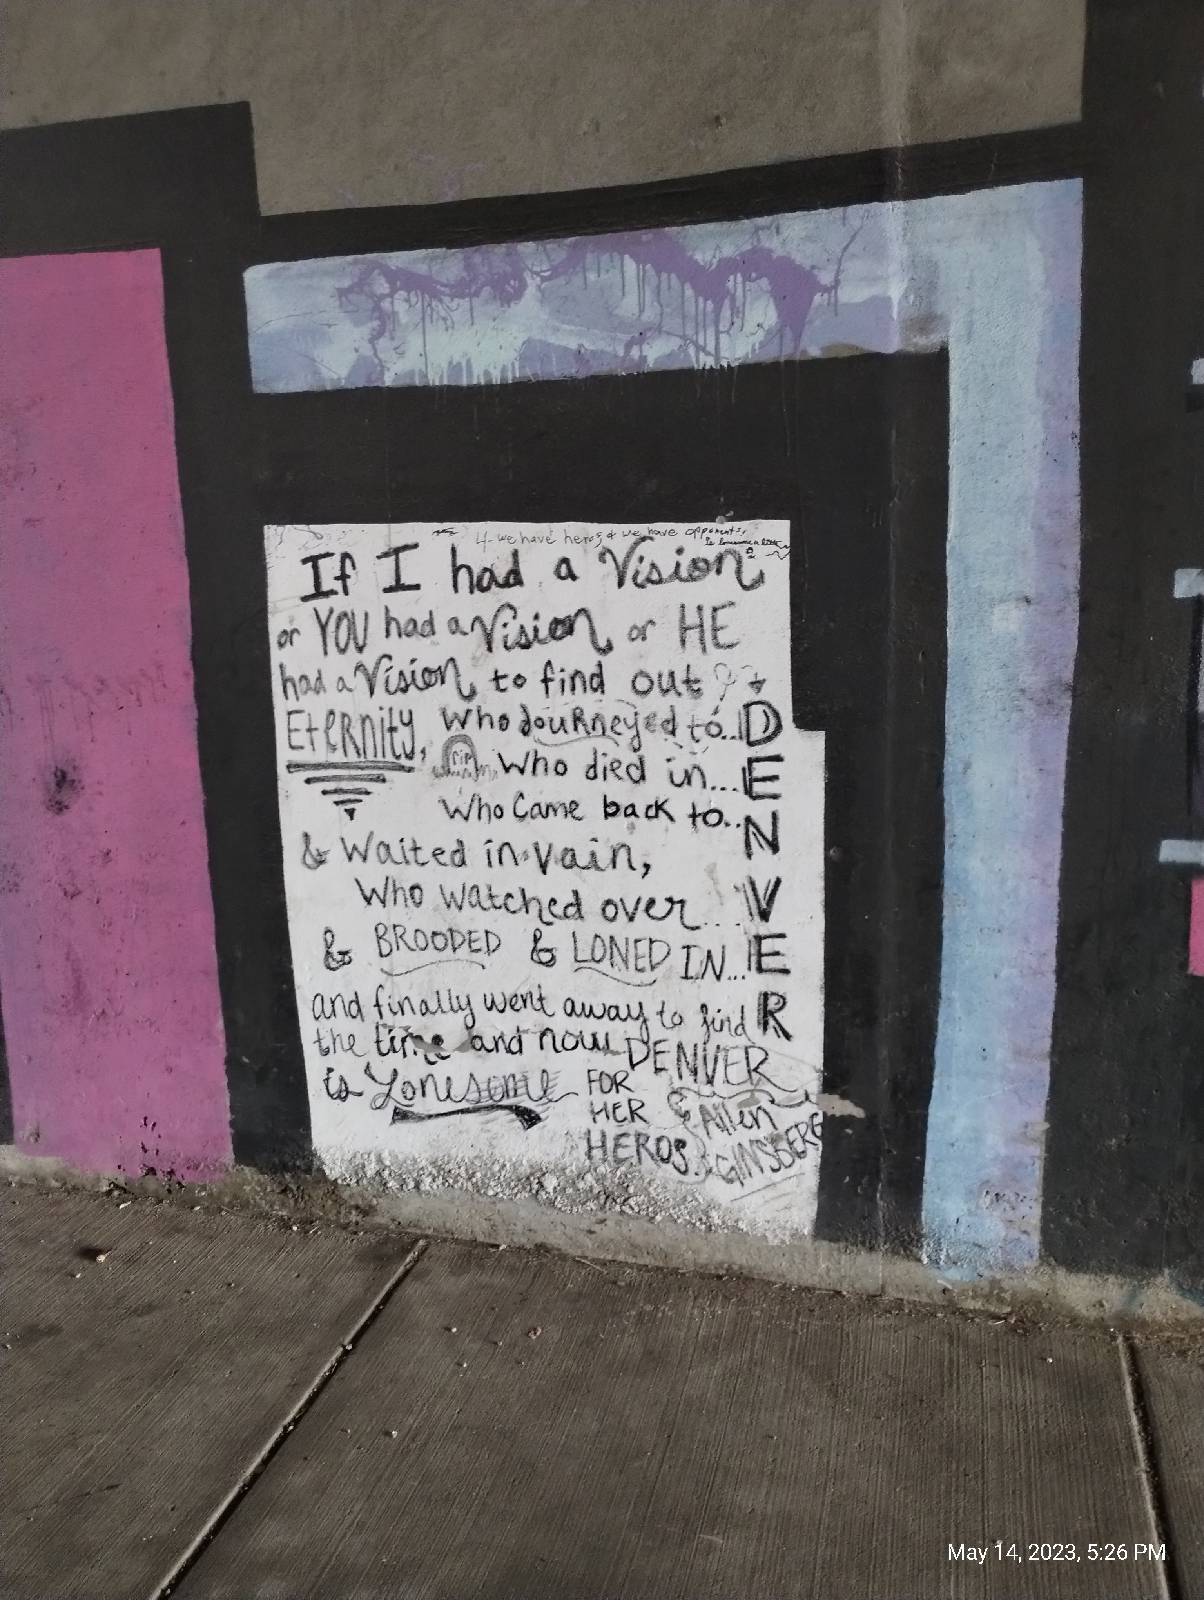 4 we have heros & we have opponents,
If I had a Vision
or YOU had a Vision or HE
had a Vision to find out
EtERNity, Who JouRNeyed to..
rip Who died in...
Who Came back to..
& Waited in vain,
Who watched over...
& BROODED & LONED IN...
DENVER
and finally went away to find
the time and now DENVER
is Lonesome FOR
HER
HEROS.
Allen
GINSBERG
May 14, 2023, 5:26 PM